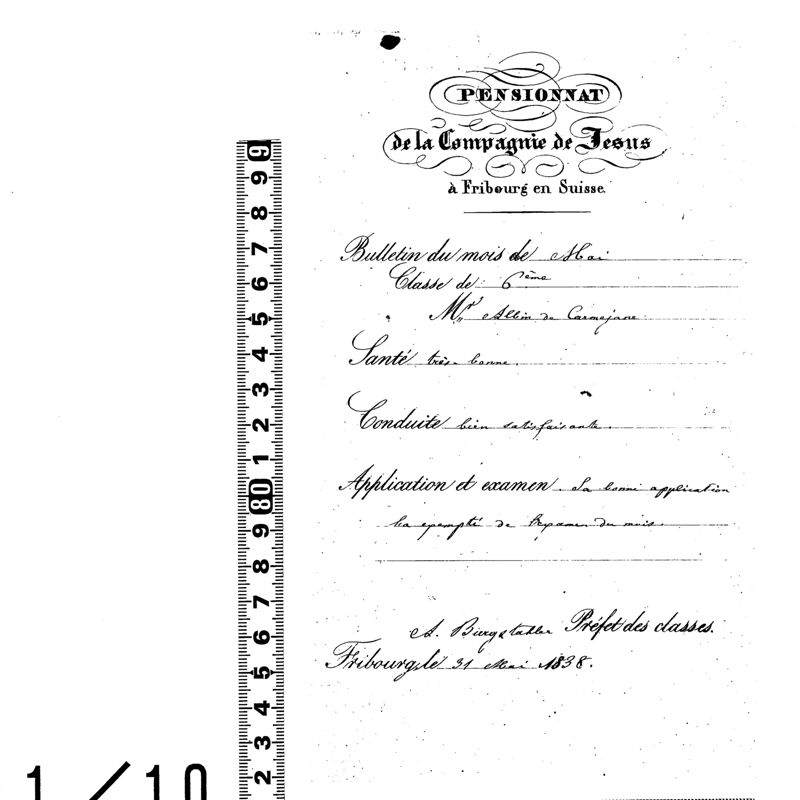 PENSIONNAT
de la Compagnie de Jesus
à Fribourg en Suisse.
Bulletin du mois de Mai
Classe de 6ème
Mr Albin de Carmejane
Santé très bonne.
Conduite bien satisfaisante.
Application et examen. Sa bonne application
l'a exempté de l'examen du mois.
A. Burgstahler Préfet des classes.
Fribourg, le 31 Mai 1838.
9
9
8
7
6
5
4
3
2
1
80
9
8
7
6
5
4
3
2
1/10